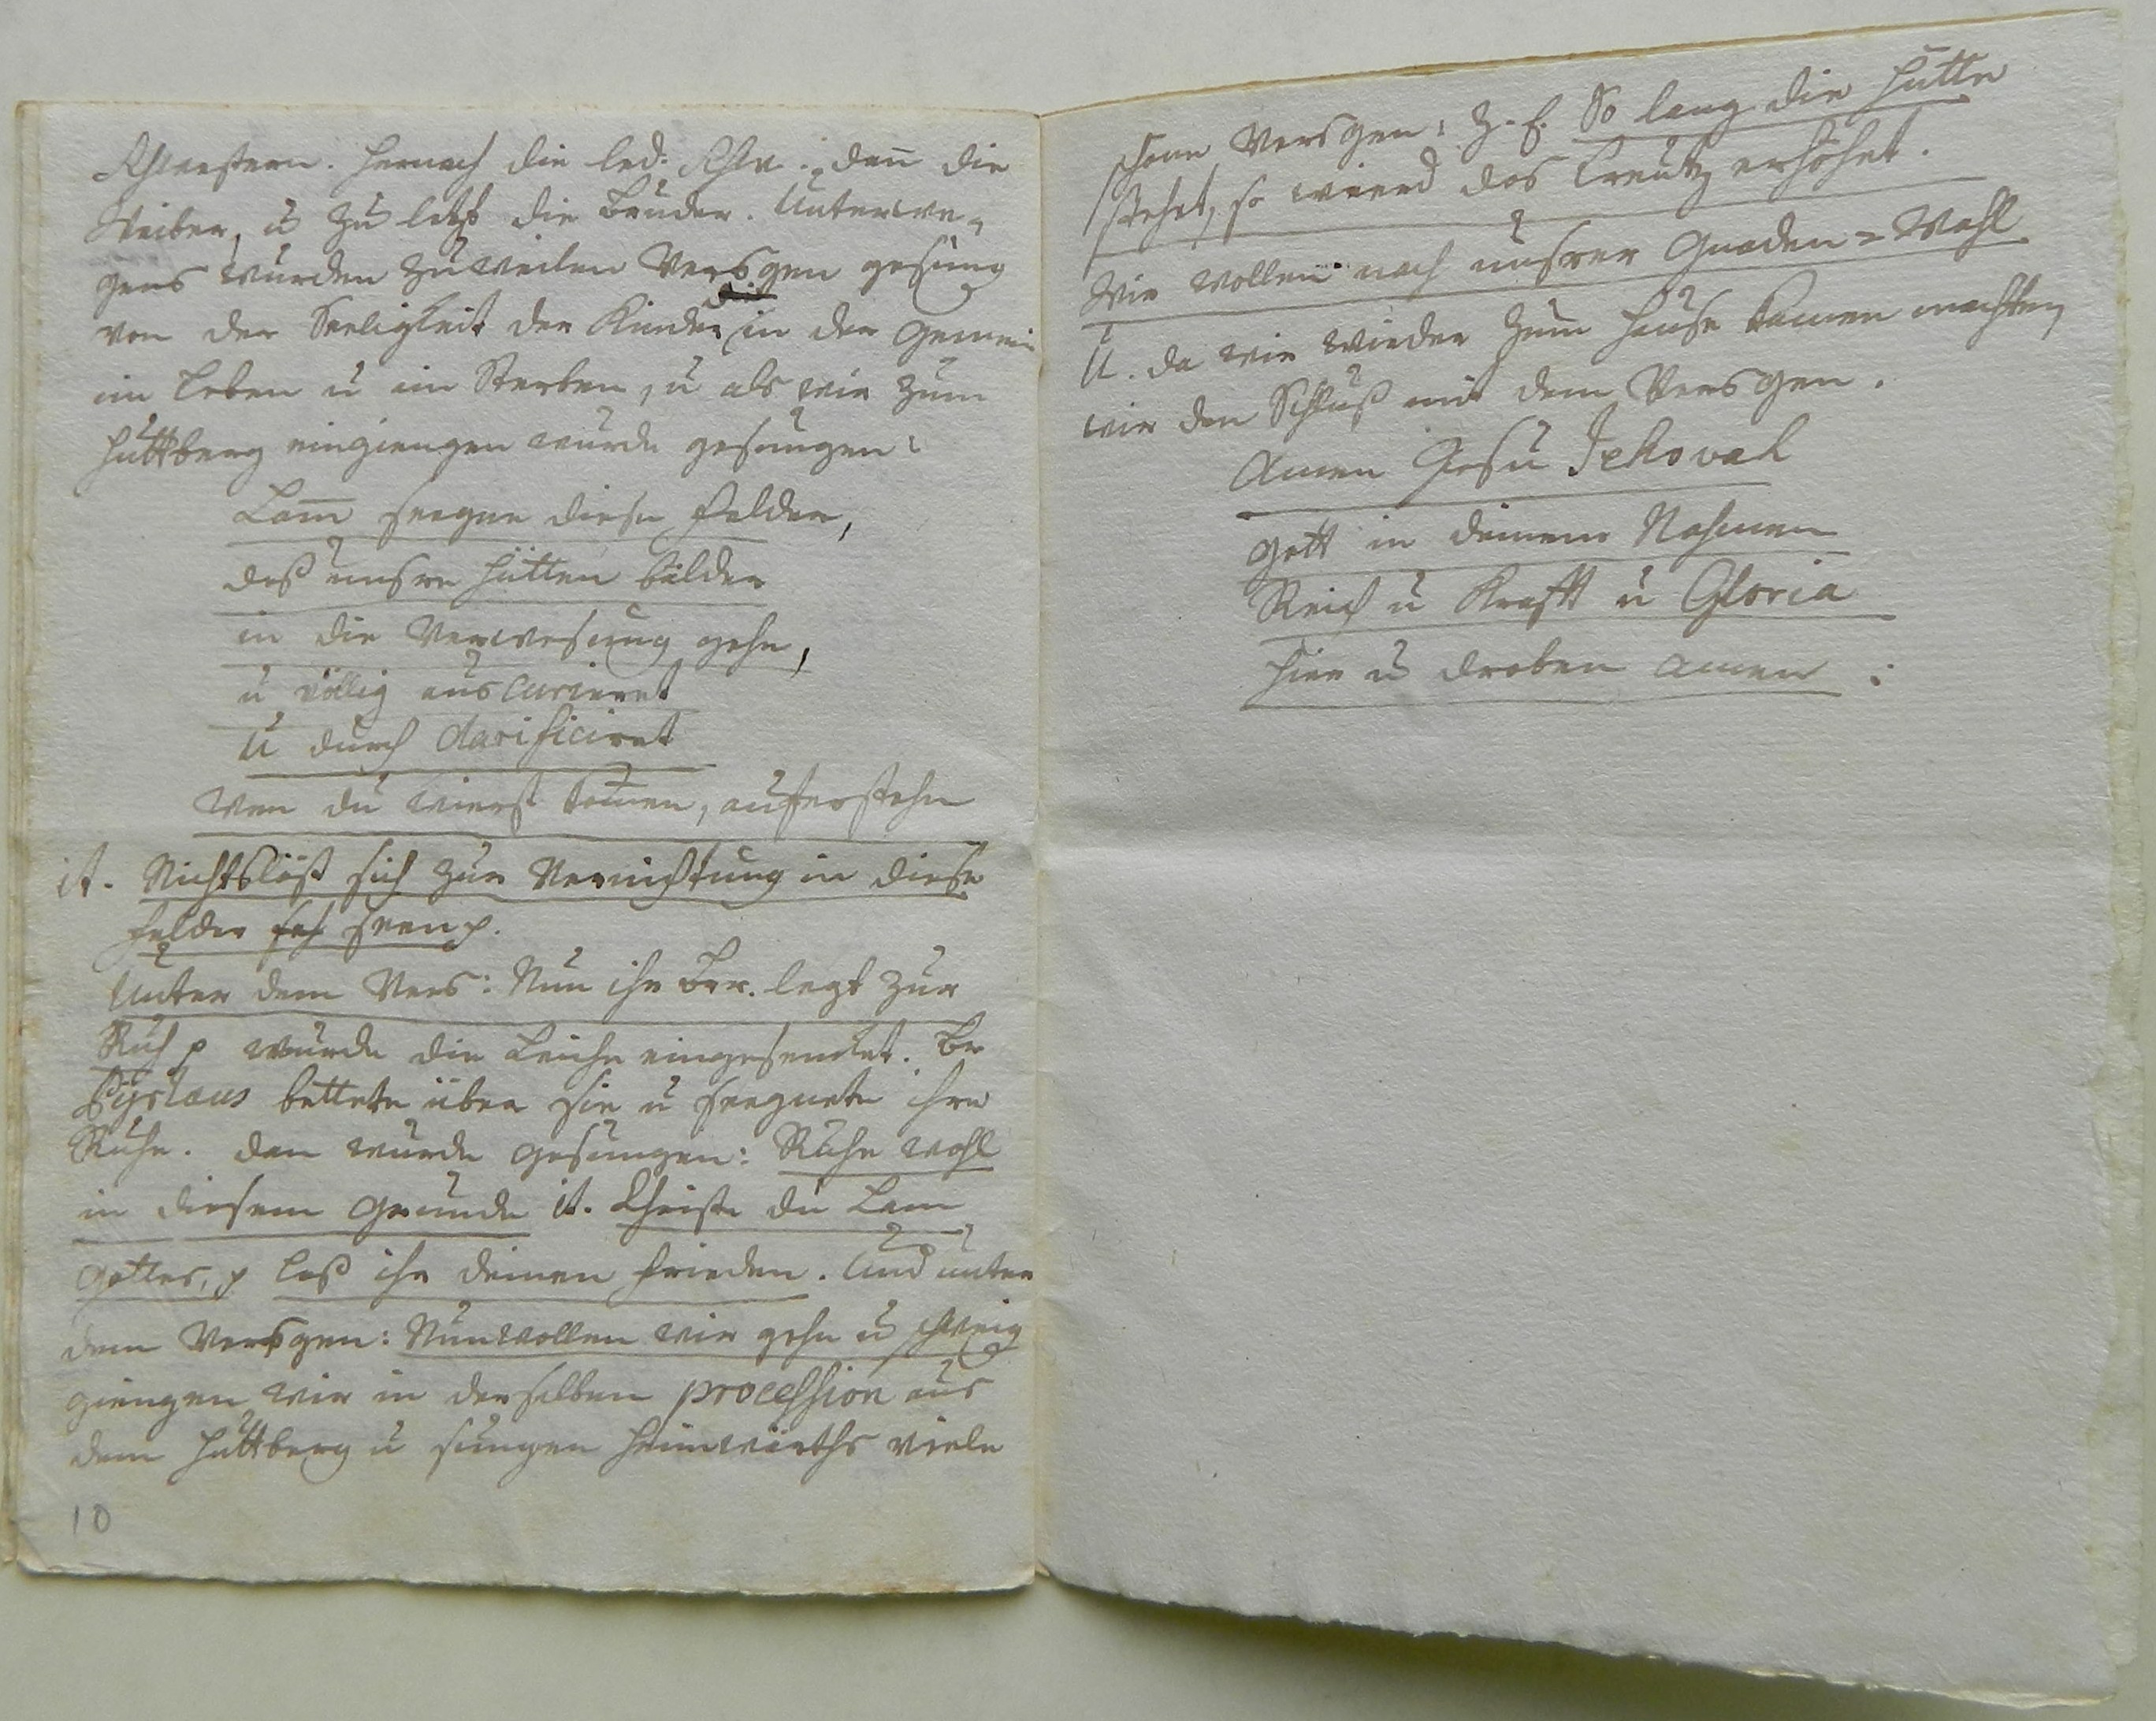 Schwestern. Hernach die led. Schw. dan̅ die
Weiber, u zu letzt die Brüder. Unterwe-
gens wurden zuweilen Versgen gesung
von der Seeligkeit der Kinder in der Gemein
im Leben u im Sterben, u als wir zum
Huttberg eingiengen wurde gesungen:
Lam̅ seegne diese Felder,
daß unsre Hütten bälder
in die Verwesung gehn,
u völlig auscurieret
u durch clarificiret
wen du wierst kom̅en, auferstehn
it. Nichts läst sich zur Vernichtung in diese
Felder seen p.
Unter dem Vers: Nun ihr Brr. legt zur
Ruh p wurde die Leiche eingesencket. Br
Pyrlaeus bettete über sie u seegnete ihre
Ruhe. dan wurde gesungen: Ruhe wohl
in diesem Grunde it. Christe du Lam
Gottes, p laß ihr deinen Frieden. Und unter
dem Versgen: Nun wollen wir gehn u schweig
giengen wir in derselben procession aus
dem Huttberg u sungen heimwärths viele
10
schöne Versgen: Z. E. So lang die Hütte
stehet, so wierd das Creutz erhöhet.
Wir wollen nach unsrer Gnaden-Wahl
U. da wir wieder zum Hause kamen machten
wir den Schluß mit dem Versgen.
Amen Jesu Jehovah
Gott in deinem Nahmen
Reich u Krafft u Gloria
hier u droben amen :